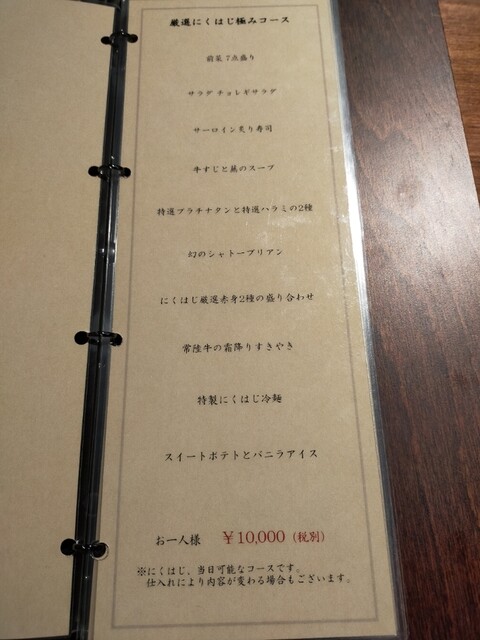 厳選にくはじ極みコース
前菜7点盛り
サラダ チョレギサラダ
サーロイン炙り寿司
牛すじと蕪のスープ
特選プラチナタンと特選ハラミの2種
幻のシャトーブリアン
にくはじ厳選赤身2種の盛り合わせ
常陸牛の霜降りすきやき
特製にくはじ冷麺
スイートポテトとバニラアイス
お一人様 ￥10,000（税別）
※にくはじ、当日可能なコースです。
仕入れにより内容が変わる場合もございます。